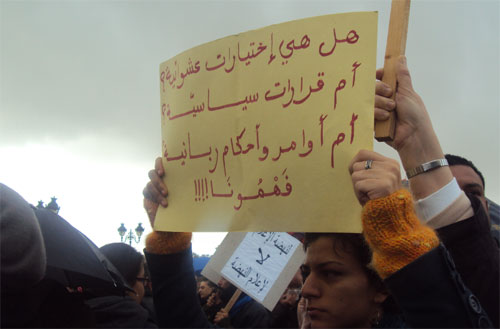 هل هي إختيارات عشوائية؟
أم قرارات سياسيّة؟
أم أوامر وأحكام ربانية
فَهْمُونَا!!!!
لا
لإعلام النهضة